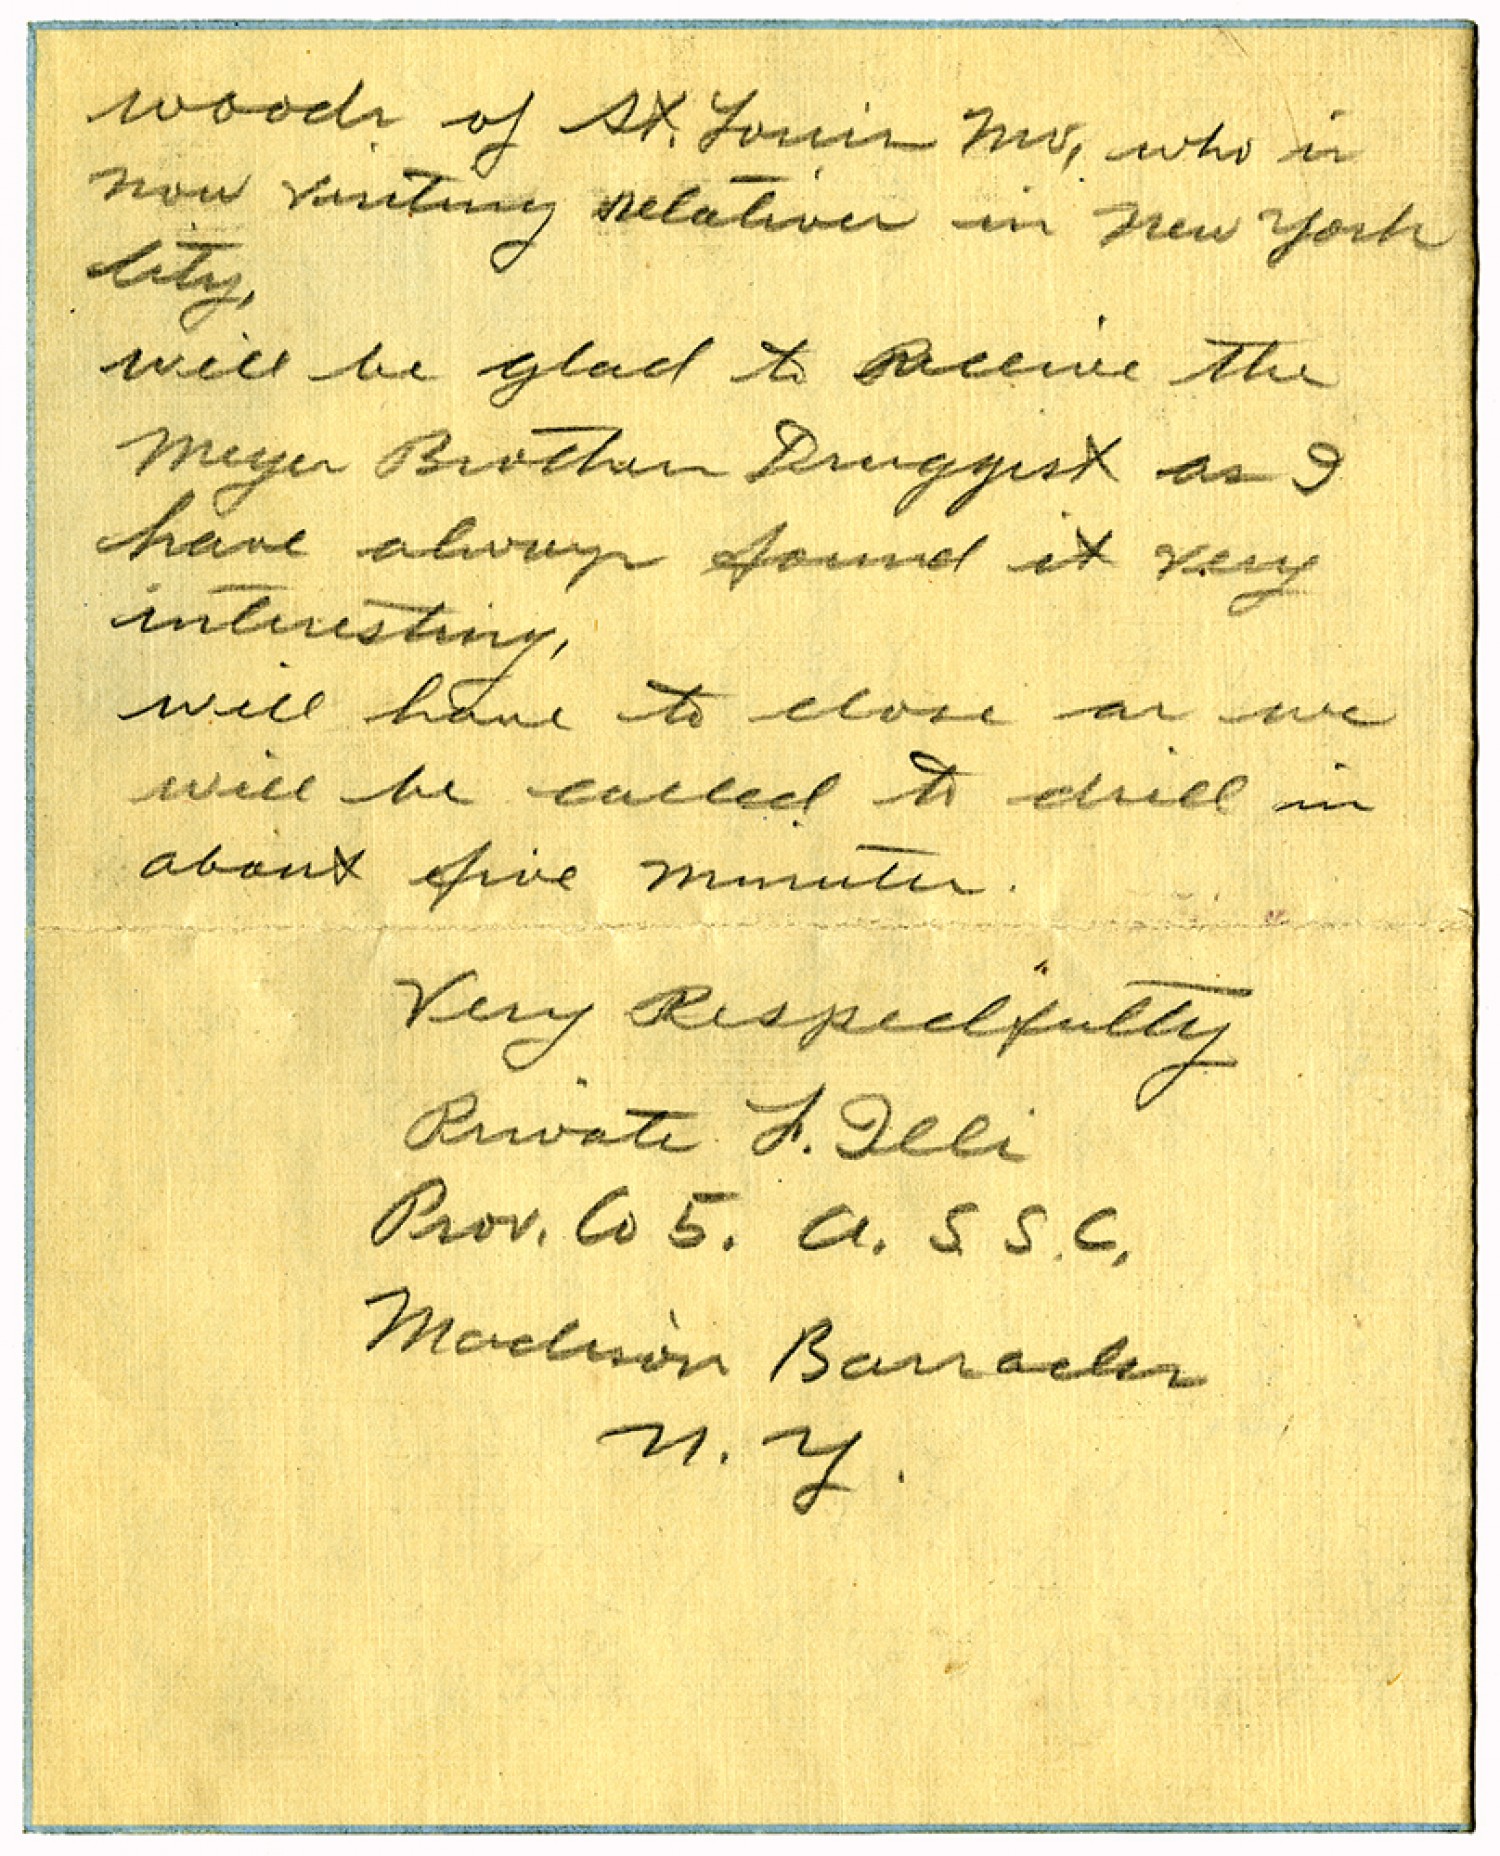 woods of St. Louis Mo, who is
now visiting relatives in New York
City,
will be glad to Receive the
Meyer Brothers Druggist as I
have always found it very
interesting,
will have to close as we
will be called to drill in
about five minutes.
Very Respectfully
Private L. Illi
Prov. Co 5. A. S. S. C,
Madison Barracks
N. Y.